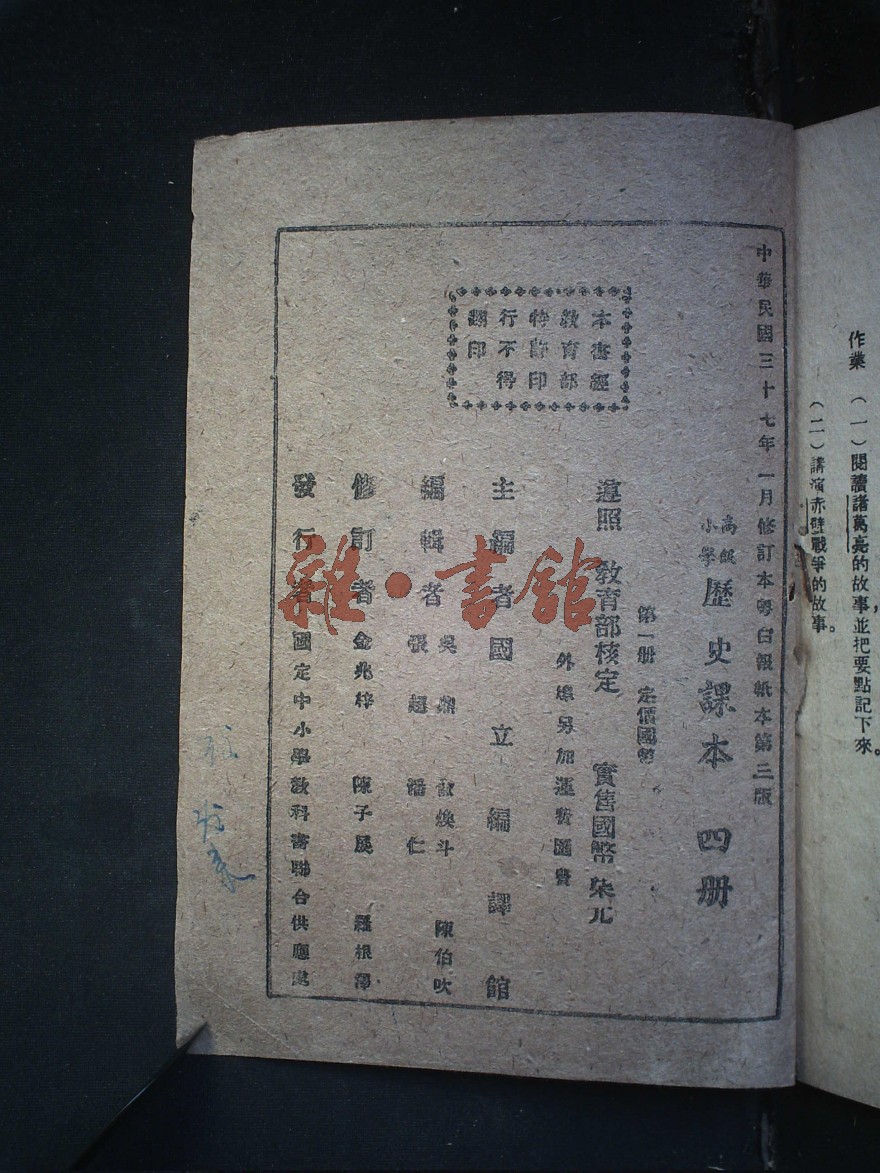 作業　（一）閱讀諸葛亮的故事，並把要點記下來。
（二）講演赤壁戰爭的故事。
中華民國三十七年一月修訂本粵白報紙本第三版
高級小學 歷史課本 四册
第一册 定價國幣
遵照 教育部核定 實售國幣柒元
外埠另加運費匯費
本書經
教育部
特許印
行不得
翻印
主編者 國立編譯館
編輯者 吳鼎 煥斗 陳伯吹
張超 潘仁
修訂者 金兆梓 陳子展 羅根澤
發行者 國定中小學教科書聯合供應處
雜·書館